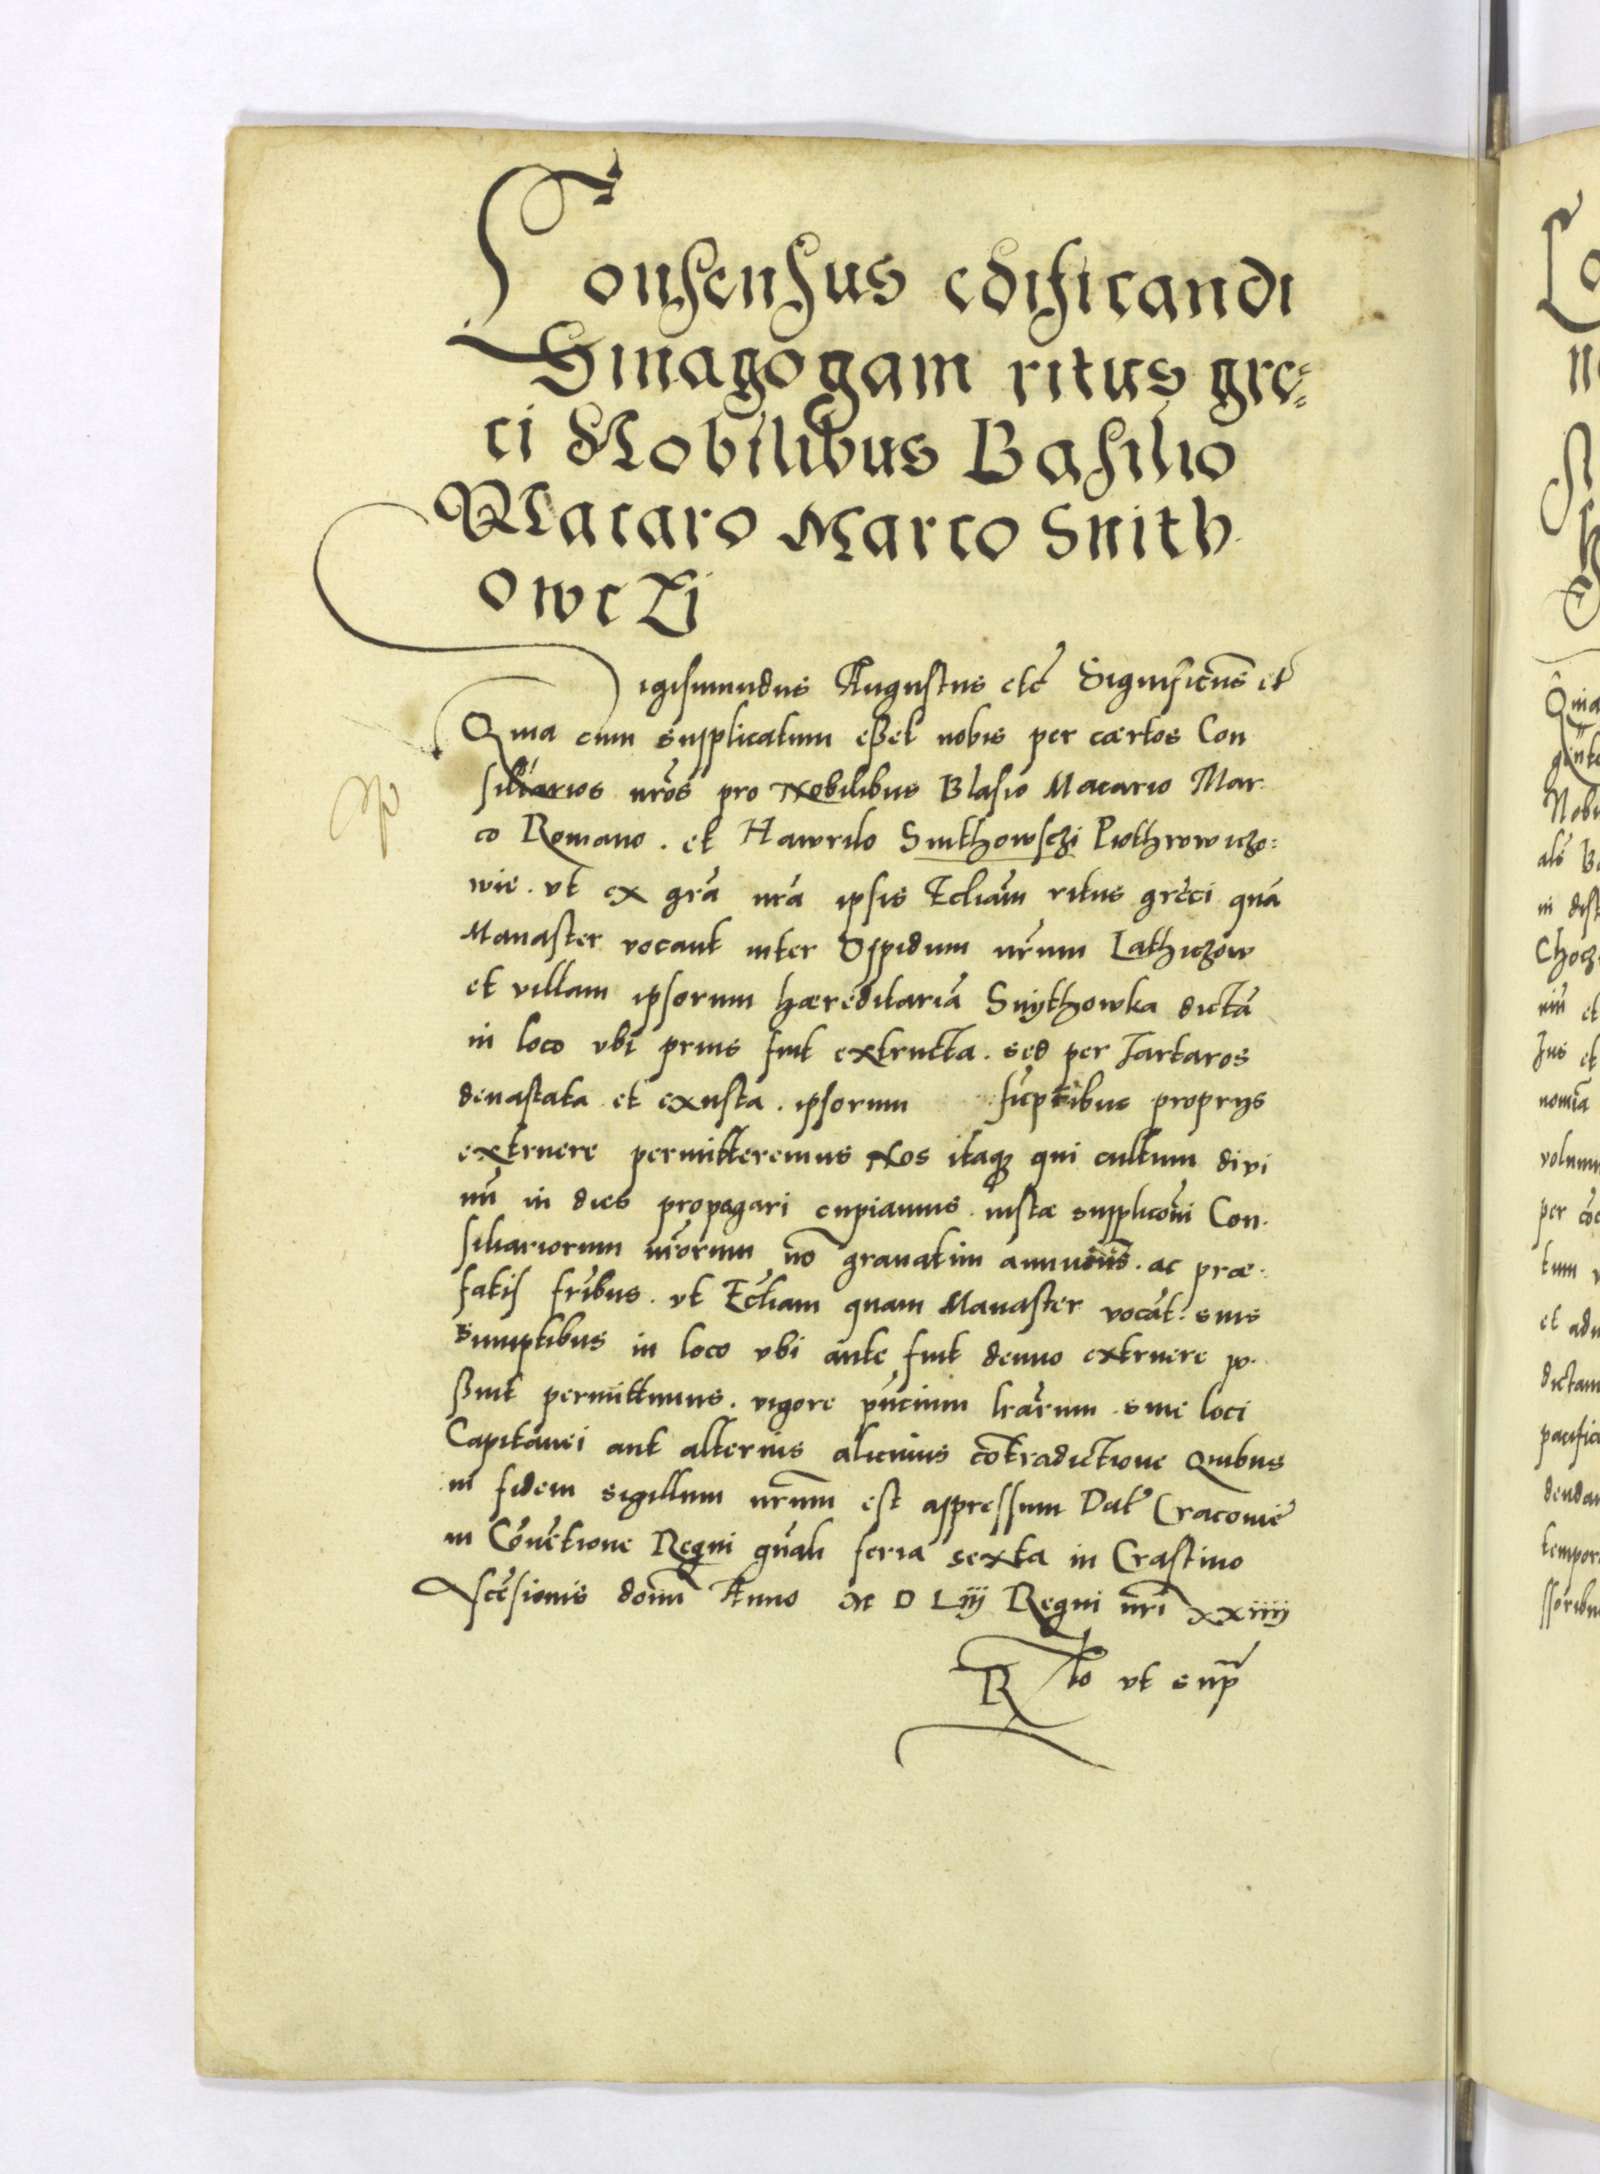 Consensus edificandi
Sinagogam ritus gre=
ci Nobilibus Basilio
Macaro Marco Snith
owcZj
Sigismundus Augustus etc̃ Significam̃s etc̃
Quia cum supplicatum eßet nobis per cærtos Con
siliarios nr̃os pro Nobilibus Blasio Macario Mar
co Romano . et Hawrilo Snithowschi Piothrowiczo=
wie . vt ex gr̃a nr̃a ipsis Eccliam̃ ritus gręci quã
Manaster vocant inter Oppidum nr̃um Lathiczow
et villam ipsorum hæreditariã Snythowka dictã
in loco vbi prius fuit extructa . sed per Tartaros
deuastata et exusta . ipsorum sũptibus proprijs
extruere permitteremus Nos itaq̃ qui cultum divi
nũ in dies propagari cupiamus . iustæ supplicõni Con
siliariorum nr̃orum nõ grauatim annuẽns . ac præ
fatis fr̃ibus . vt Eccl̃iam quam Manaster vocãt . suis
Sumptibus in loco vbi ante fuit denuo extruere po
ßint permittimus . vigore pñcium lr̃arum . sine loci
Capitanei aut alterius alicuius cõtradictione Quibus
in fidem sigillum nr̃um est appressum Dat̃ Cracouiẽ
in Cõuẽtione Regni gñali feria sexta in Crastino
Ascẽsionis domĩ Anno M D Liij Regni nr̃i xxiiij
Rlo vt sup̃